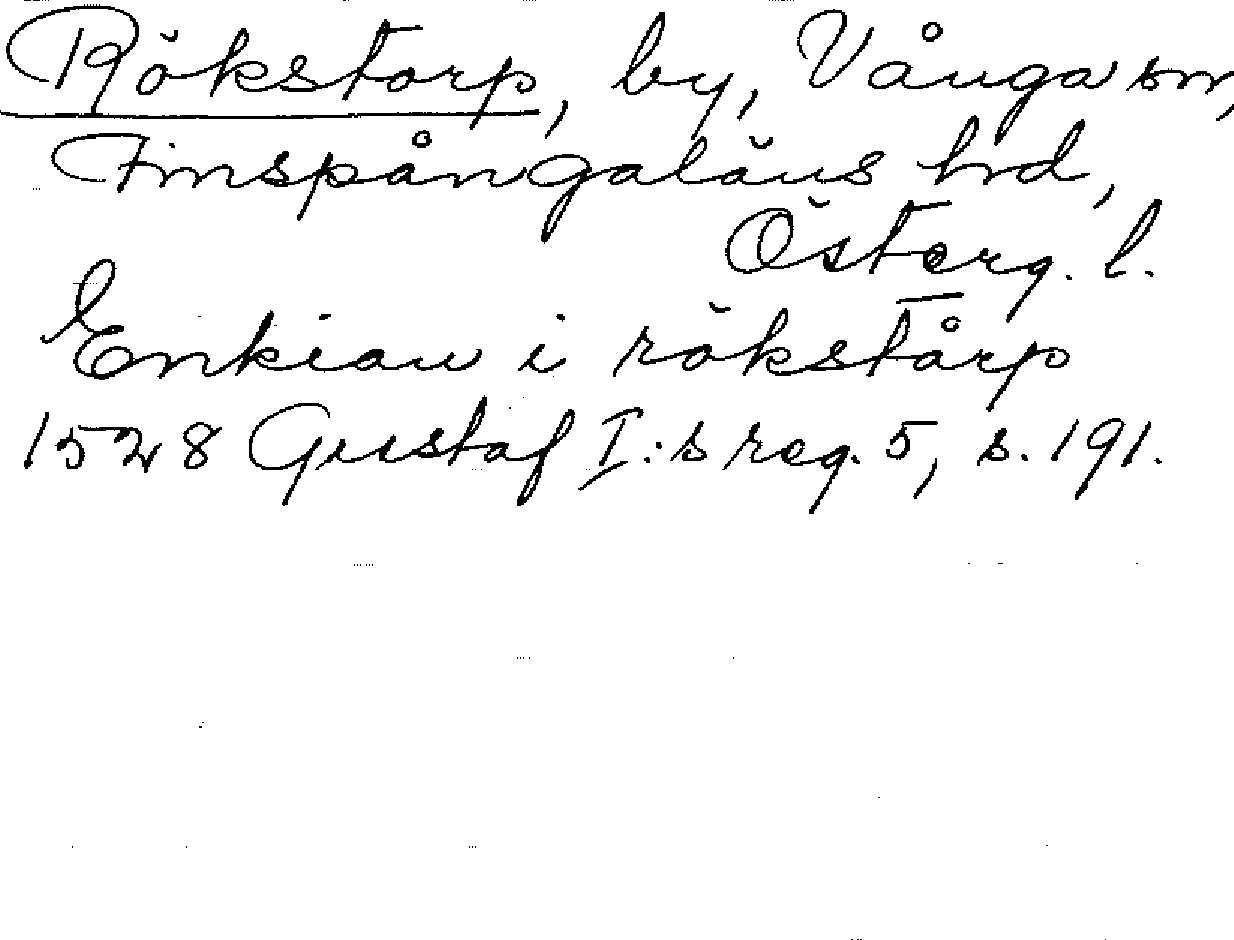 Rökstorp, by, Vånga sn,
Finspångaläns hd,
Österg. l.
Enkian i rökstårp
1528 Gustaf I:s reg. 5, s. 191.